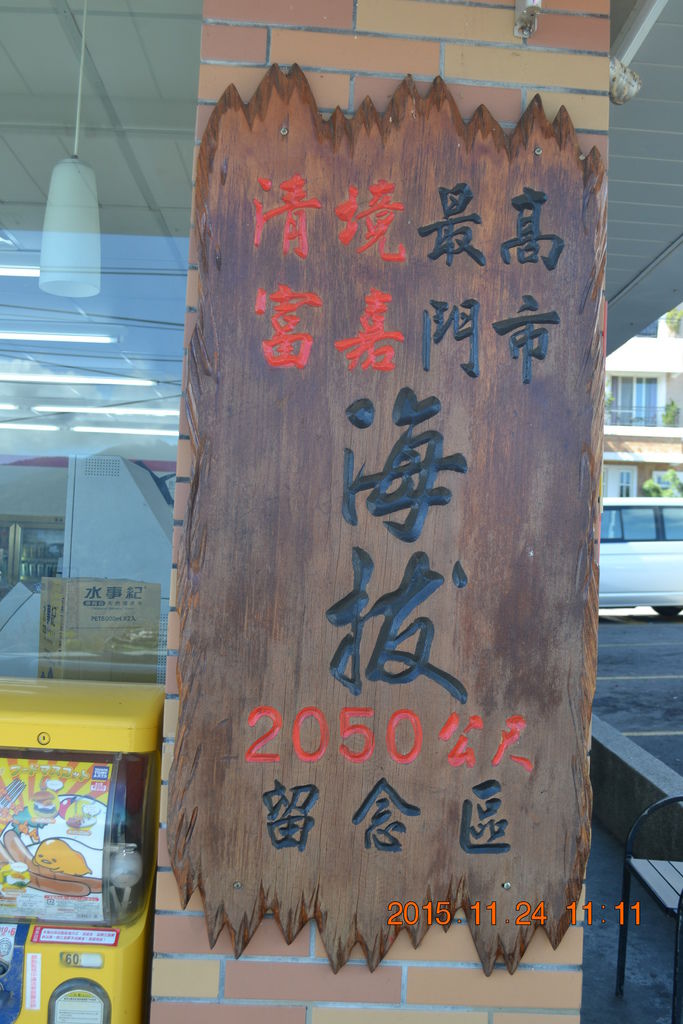 清境最高
富嘉門市
海拔
2050公尺
留念區
水事紀
PET5000ml X2入
60
2015.11.24 11:11